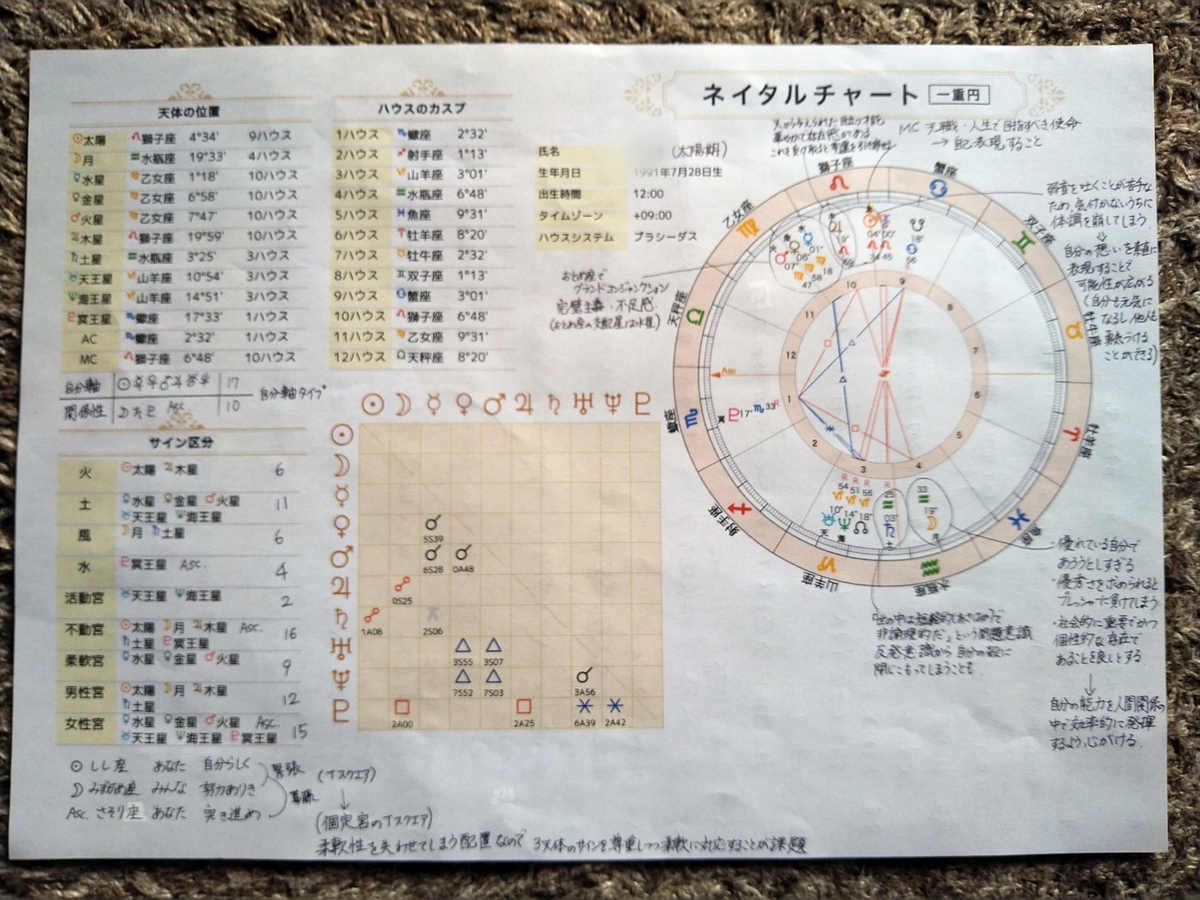 ネイタルチャート 一重円
天体の位置
太陽 獅子座 4°34' 9ハウス
月 水瓶座 19°33' 4ハウス
水星 乙女座 1°18' 10ハウス
金星 乙女座 6°58' 10ハウス
火星 乙女座 7°47' 10ハウス
木星 獅子座 19°59' 10ハウス
土星 水瓶座 3°25' 3ハウス
天王星 山羊座 10°54' 3ハウス
海王星 山羊座 14°51' 3ハウス
冥王星 蠍座 17°33' 1ハウス
AC 蠍座 2°32' 1ハウス
MC 獅子座 6°48' 10ハウス
ハウスのカスプ
1ハウス 蠍座 2°32'
2ハウス 射手座 1°13'
3ハウス 山羊座 3°01'
4ハウス 水瓶座 6°48'
5ハウス 魚座 9°31'
6ハウス 牡羊座 8°20'
7ハウス 牡牛座 2°32'
8ハウス 双子座 1°13'
9ハウス 蟹座 3°01'
10ハウス 獅子座 6°48'
11ハウス 乙女座 9°31'
12ハウス 天秤座 8°20'
氏名 (太陽期)
生年月日 1991年7月28日生
出生時間 12:00
タイムゾーン +09:00
ハウスシステム プラシーダス
自分軸 17
関係性 Asc 10
自分軸タイプ
サイン区分
火 太陽 木星 6
土 水星 金星 火星 11
天王星 海王星
風 月 土星 6
水 冥王星 Asc. 4
活動宮 天王星 海王星 2
不動宮 太陽 月 木星 Asc. 16
土星 冥王星
柔軟宮 水星 金星 火星 9
男性宮 太陽 月 木星 12
土星
女性宮 水星 金星 火星 Asc. 15
天王星 海王星 冥王星
5S39
6S28 0A48
0S25
1A08 2S06
3S55 3S07
7S52 7S03 3A56
2A00 2A25 6A39 2A42
MC 天職・人生で目指すべき使命
→ 自己表現すること
獅子座
蟹座
双子座
牡牛座
牡羊座
魚座
水瓶座
山羊座
射手座
蠍座
天秤座
乙女座
おとめ座で
グランドコンジャンクション
完璧主義・不足感
(おとめ座の支配星は水星)
弱音を吐くことが苦手な
ため、気付かないうちに
体調を崩してしまう
↓
自分の想いを素直に
表現することで
可能性が広がる
(自分も元気に
なるし、他人も
勇気づける
ことができる)
・優れている自分で
あろうとしすぎる
・優秀さを求められると
プレッシャーに負けてしまう
・社会的に重要でかつ
個性的な存在で
あることを良しとする
↓
自分の能力を人間関係の
中で効率的に発揮
するよう心がける
非論理的だ」という問題意識
反発意識から自分の殻に
閉じこもってしまうことも
しし座 あなた 自分らしく
みずがめ座 みんな 努力ありき
Asc. さそり座 あなた 突き進め
緊張
葛藤
(Tスクエア)
↓
(固定宮のTスクエア)
柔軟性を失わせてしまう配置なので 3天体のサインを尊重しつつ柔軟に対応することが課題